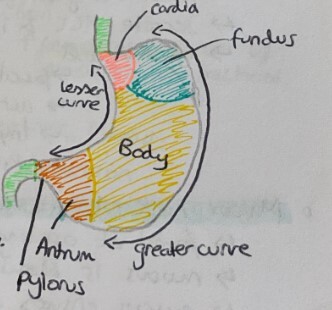 cardia
fundus
lesser
curve
Body
Antrum
greater curve
Pylorus